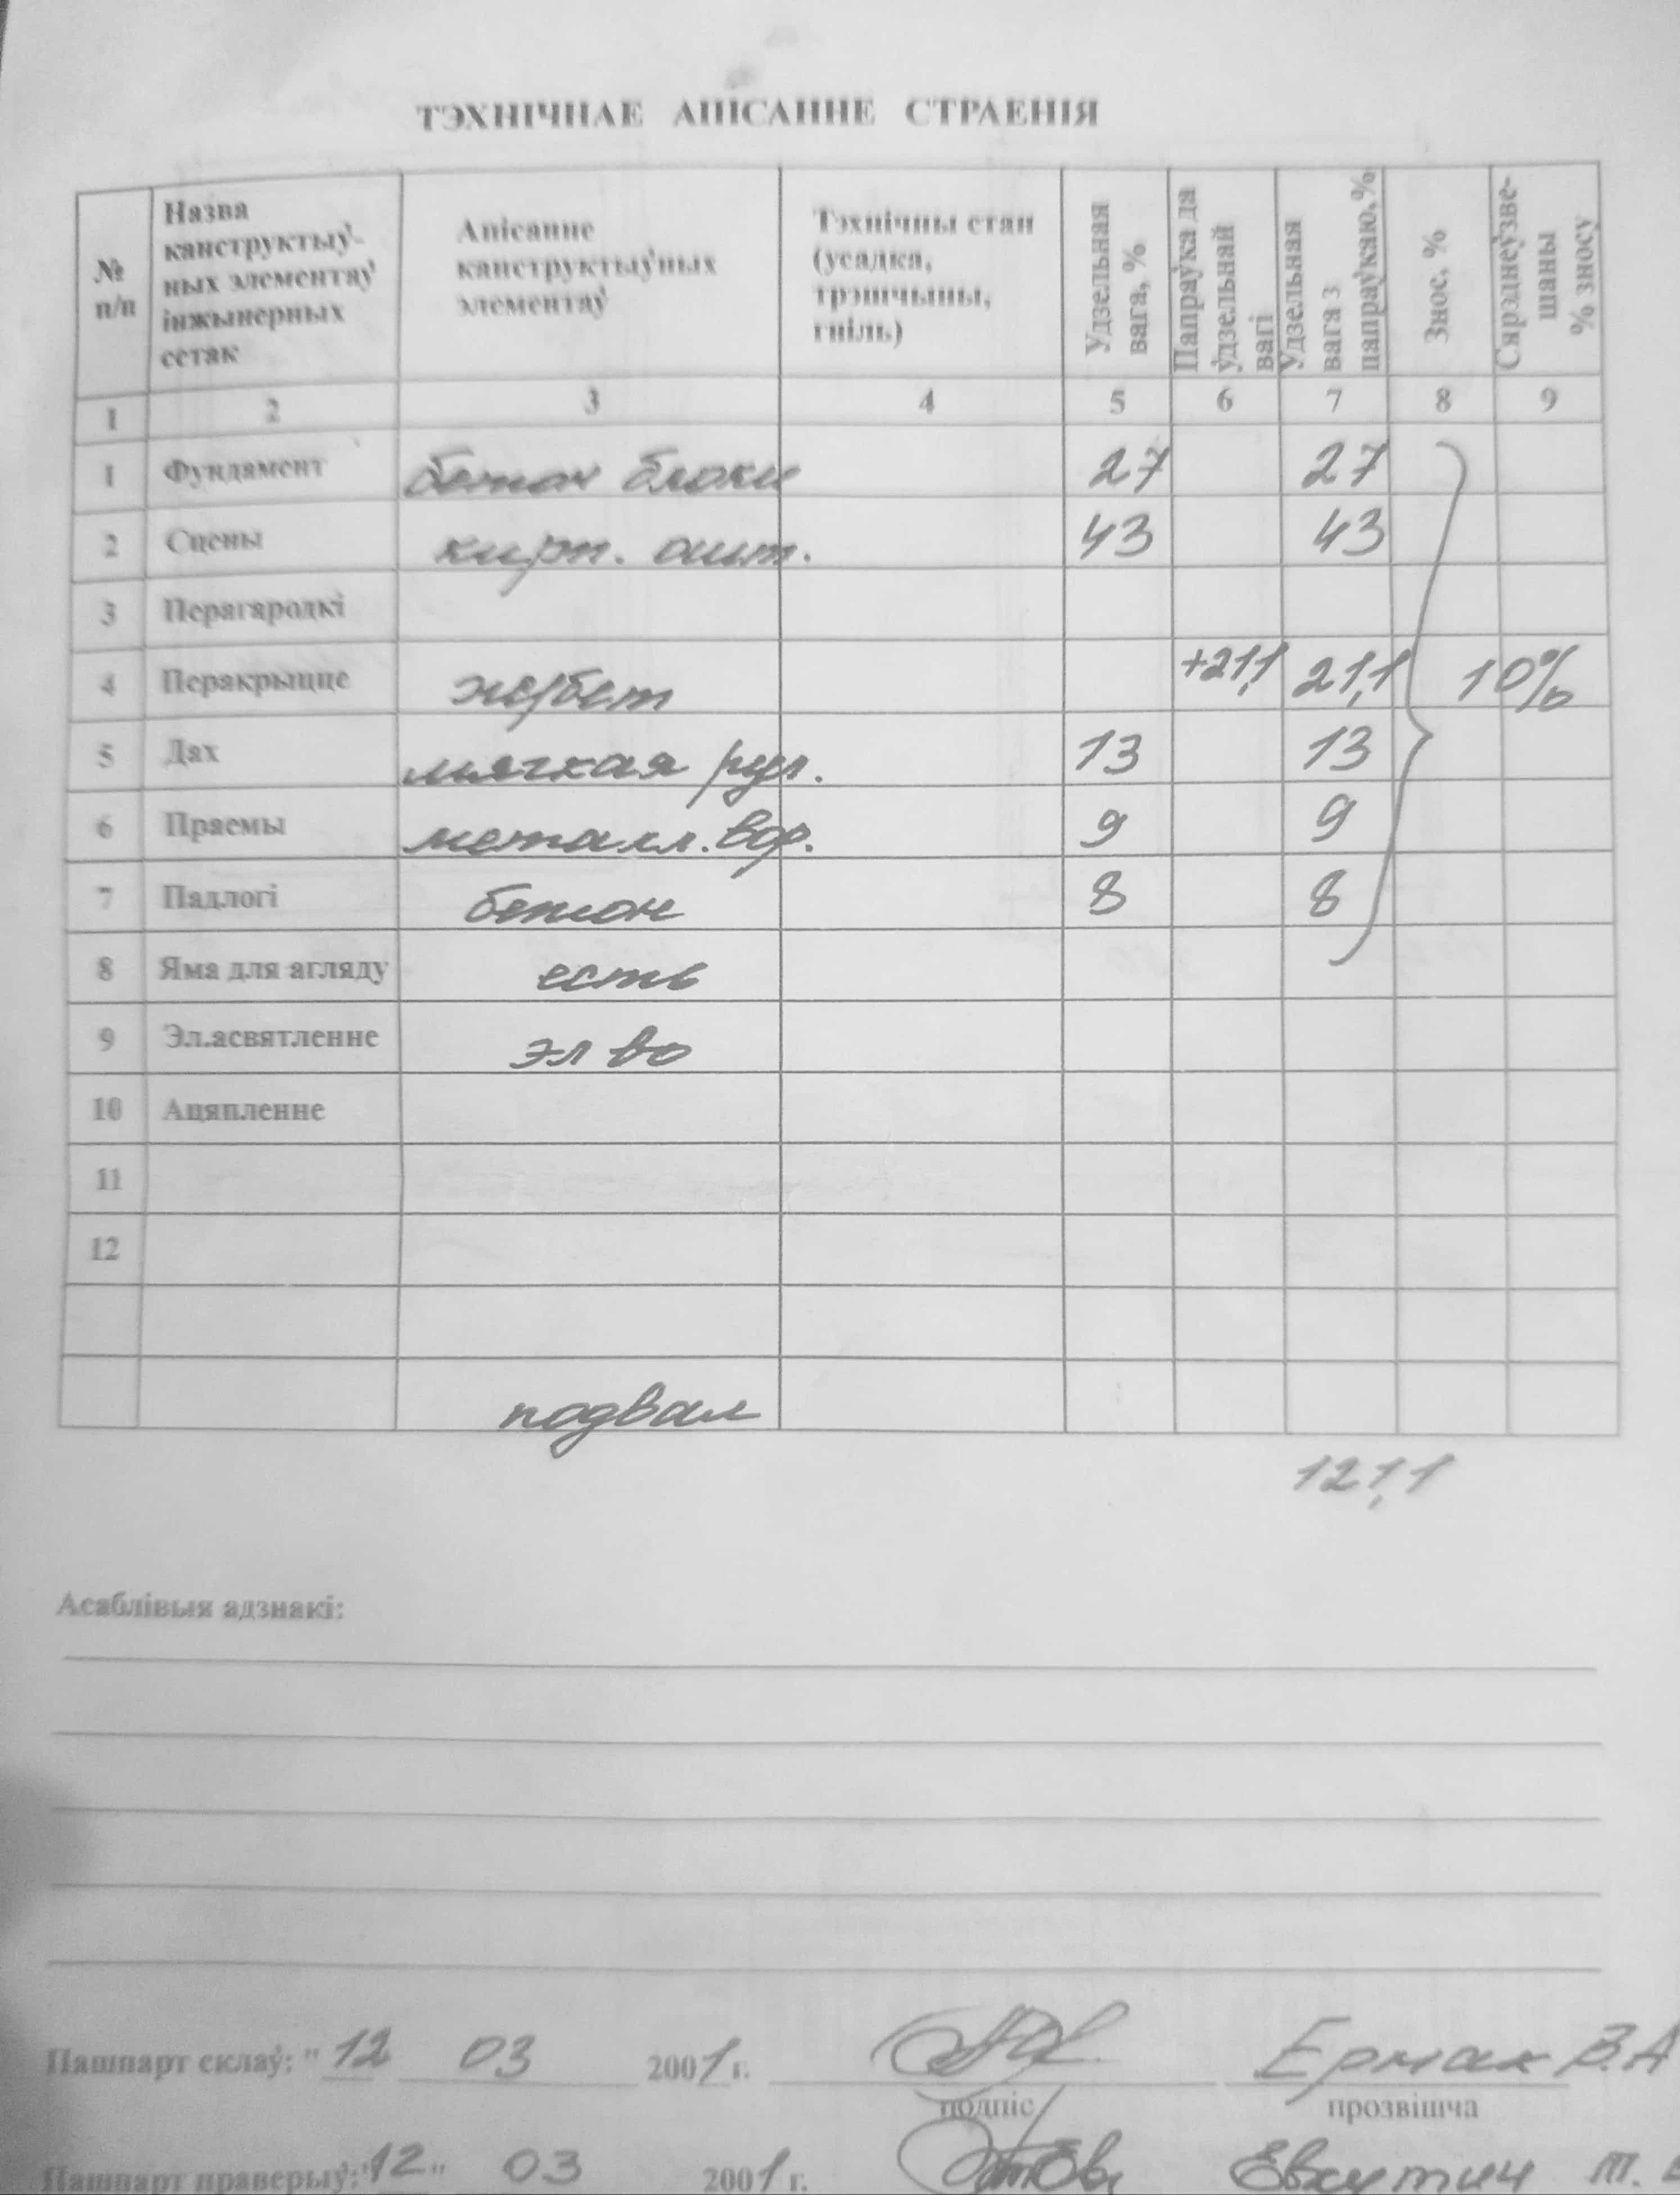 ТЭХНІЧНАЕ АПІСАННЕ СТРАЕННЯ
№ п/п
Назва
канструктыў-
ных элементаў
інжынерных
сетак
Апісанне
канструктыўных
элементаў
Тэхнічны стан
(усадка,
трэшчыны,
гніль)
Удзельная
вага, %
Папраўка да
ўдзельнай
вагі
Удзельная
вага з
папраўкаю,%
Знос, %
Сярэднеўзве-
шаны
% зносу
1 2 3 4 5 6 7 8 9
1 Фундамент бетон блоки 27 27
2 Сцены кирп. ошт. 43 43
3 Перагародкі
4 Перакрыцце жербет +21,1 21,1 10%
5 Дах мягкая рул. 13 13
6 Праемы металл. вор. 9 9
7 Падлогі бетон 8 8
8 Яма для агляду есть
9 Эл.асвятленне эл во
10 Ацяпленне
11
12
подвал
121,1
Асаблівыя адзнакі:
Пашпарт склаў: " 12 03 2001 г. Ермак В.А
подпіс прозвішча
Пашпарт праверыў: "12" 03 2001 г.